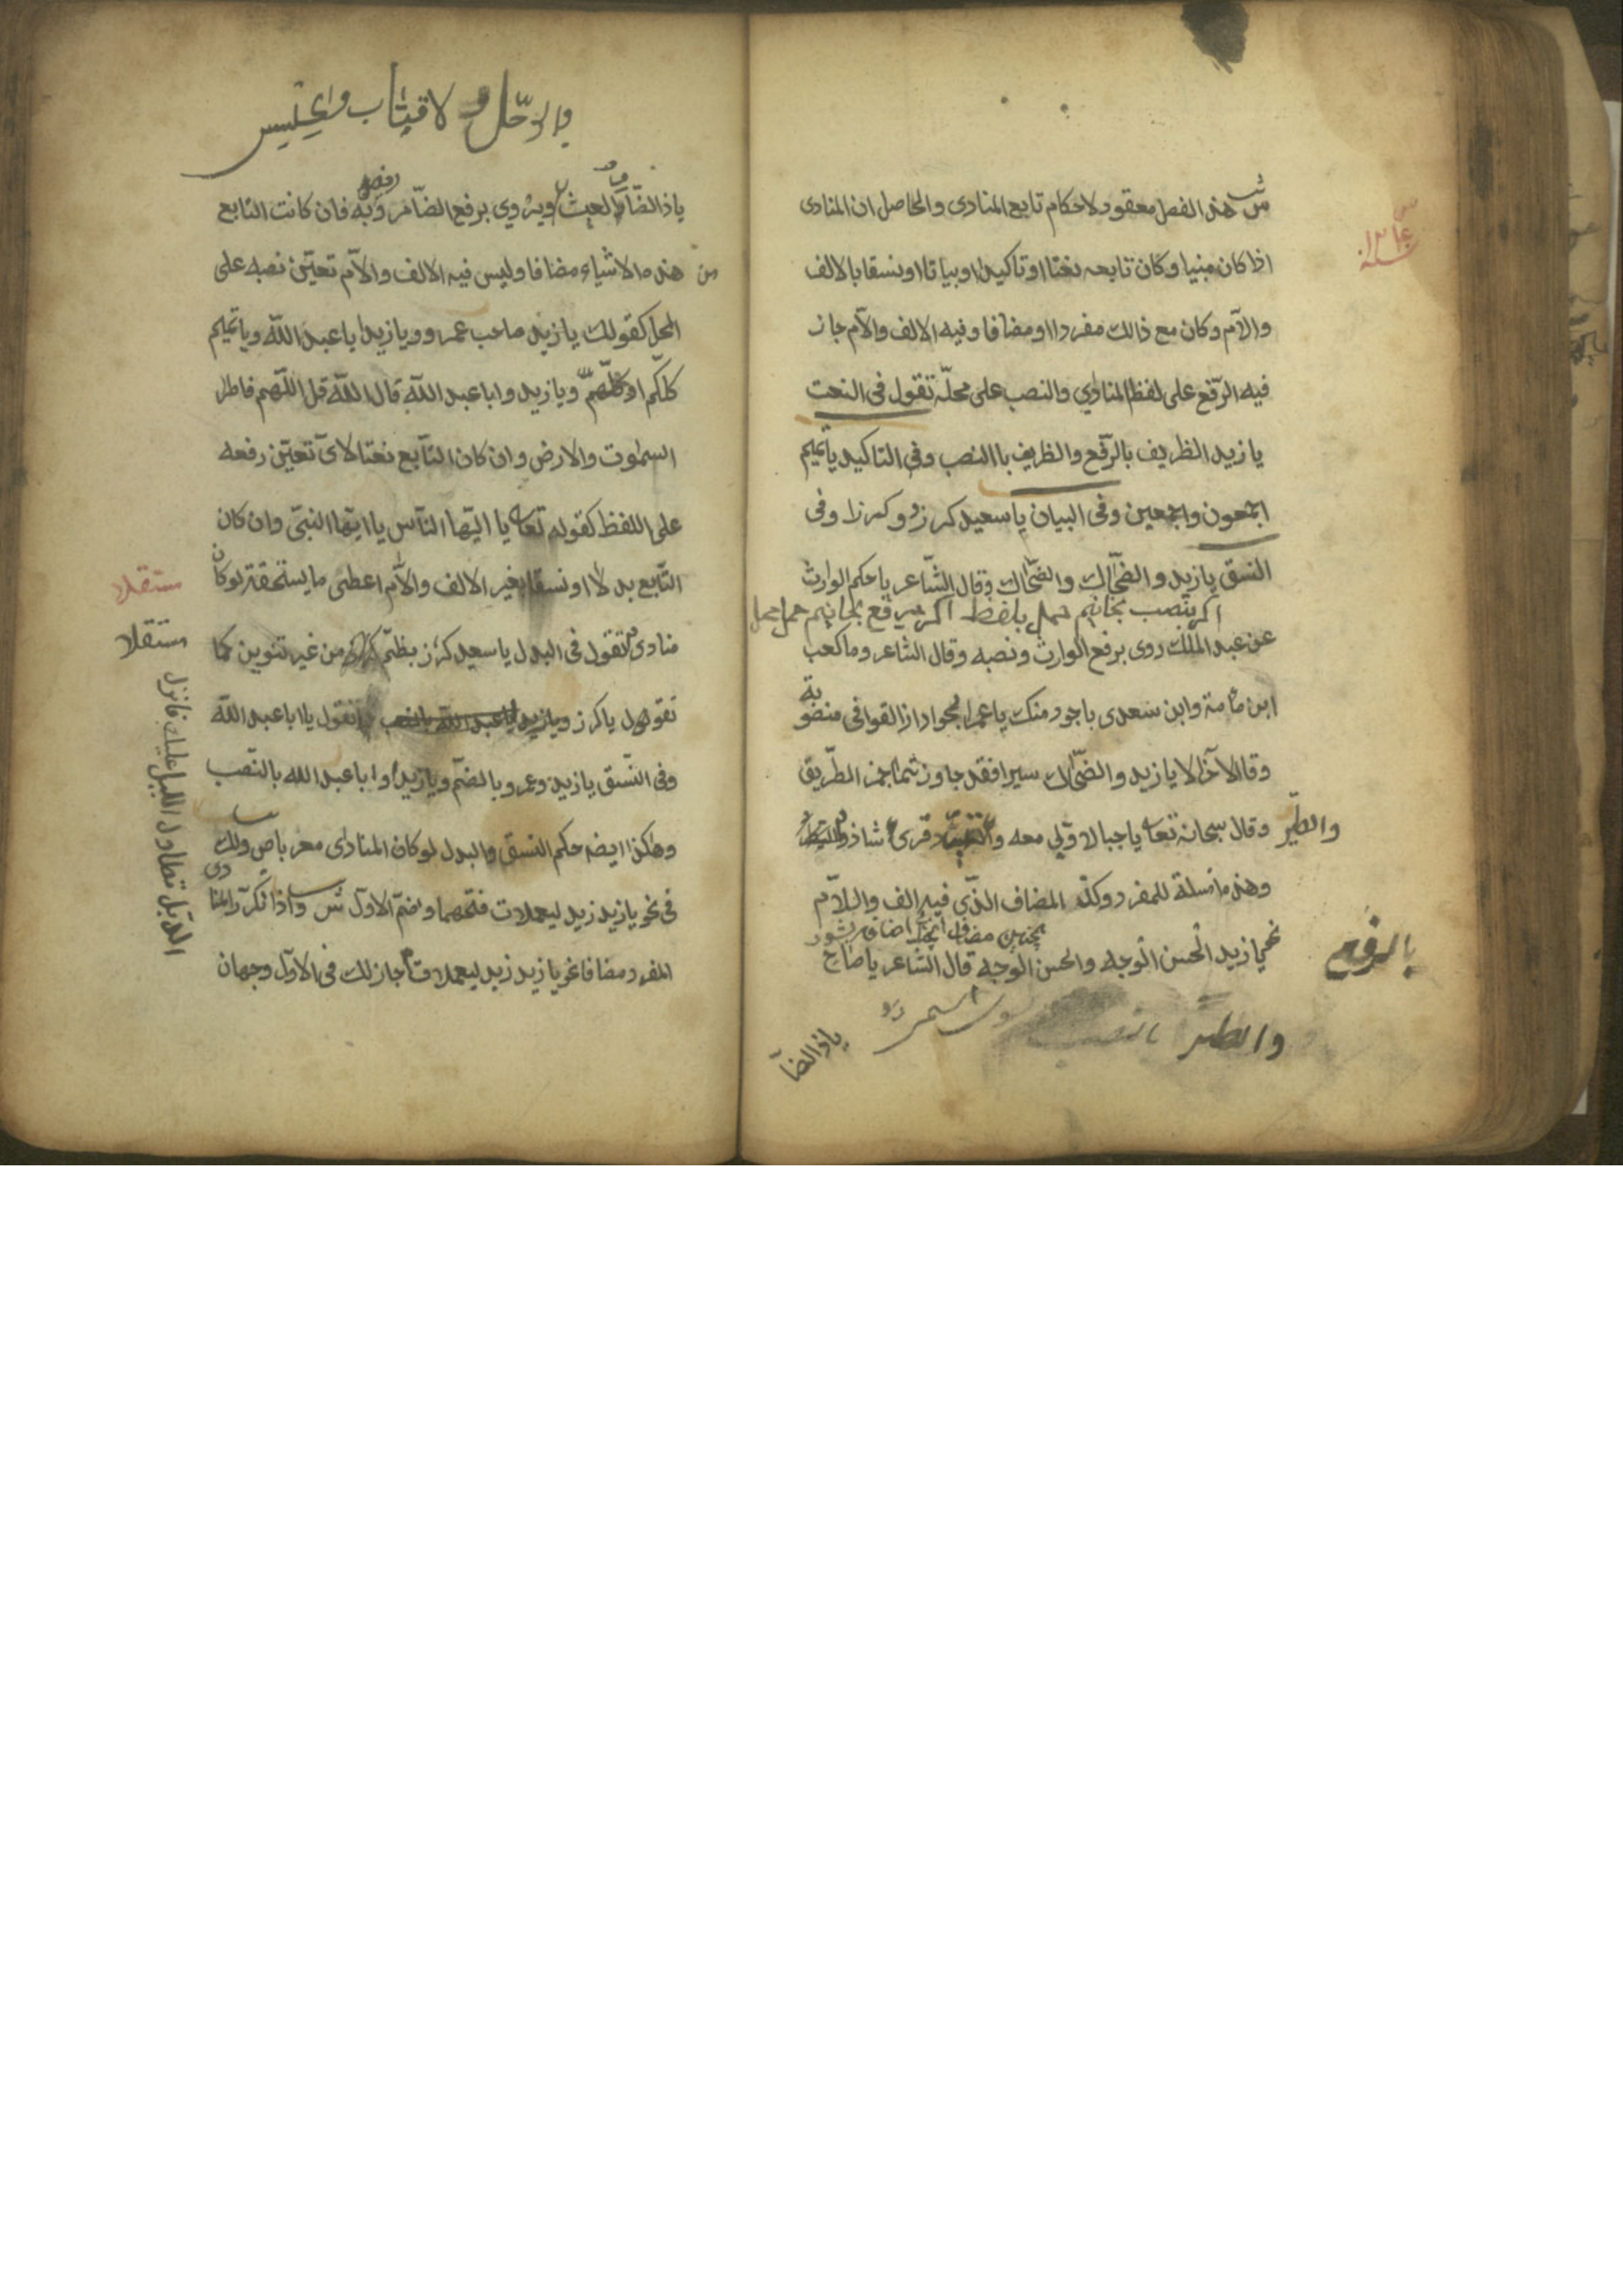 ش هذه الفصل معقود لاحكام تابع المنادى والحاصل ان المنادى
اذا كان مبنيا وكان تابعه نعتا او تاكيدا او بيانا او نسقا بالالف
والآم وكان مع ذالك مفردا او مضافا وفيه الالف والآم جاز
فيه الرّفع على لفظ المنادي والنصب على محلّه تقول فى النعت
يا زيد الظريف بالرّفع والظريف باالنصب وفى التاكيد يا تميم
اجمعون واجمعين وفى البيان يا سعيد كرز وكرزا وفى
النسق يا زيد والضحّاك والضحّاك وقال الشّاعر يا حكم الوارث
عن عبد الملك روى برفع الوارث ونصبه وقال الشاعر وما كعب
ابن مامة وابن سعدى باجود منك يا عمر الجوادا زالقوافى منصوبة
وقا الآخر الا يا زيد والضحّاك سيرا فقد جاوزتما خمر الطّريق
والطّير
وقال سبحانه تعا يا جبال اوّبي معه وقرئ شاذ والطير
وهذه امسلة للمفرد وكذ المضاف الذّي فيه الف والـلاّم
نحو يا زيد الحسن الوجه والحسن الوجه قال الشاعر يا صاح
بالرفع
والطير بالنصب
ياذا الضآ
ياذا الضّامر العيش ويروي برفع الضامر وبه فان كانت التابع
من هذه الاشياء مضافا وليس فيه الالف والآم تعيّن نصبه على
المحل كقولك يا زيد صاحب عمرو ويا زيد ابا عبد اللّه ويا تميم
كلكّم او كلّهمّ ويا زيد وابا عبد اللّه قال اللّه قل اللّهم فاطر
السمٰوت والارض وان كان التّابع نعتا لاىّ تعيّن رفعه
على اللفظ كقوله تعا يا ايّها النّاس يا ايّها النبىّ وان كان
التّابع بدلا او نسقا بغير الالف والآم اعطى ما يستحقه لو كان
مستقلا
مستقلا
منادى تقول فى البدل يا سعيد كرز بظمّ كرز من غير تنوين كما
تقول يا كرز ويا زيد ابا عبد اللّه بالنصب تقول يا ابا عبد اللّه
وفى النّسق يا زيد وعمرو بالضمّ ويا زيد وابا عبد الله بالنّصب
وهٰكذا ايضه حكم النسق والبدل لو كان المنادى معربا ص ولك
فى نحو يا زيد زيد ليعملات فتحهما وضمّ الاوّل ش واذا تكرّر المنادى
المفرد مضافا نحو يا زيد زيد ليعملات جاز لك فى الاوّل وجهان